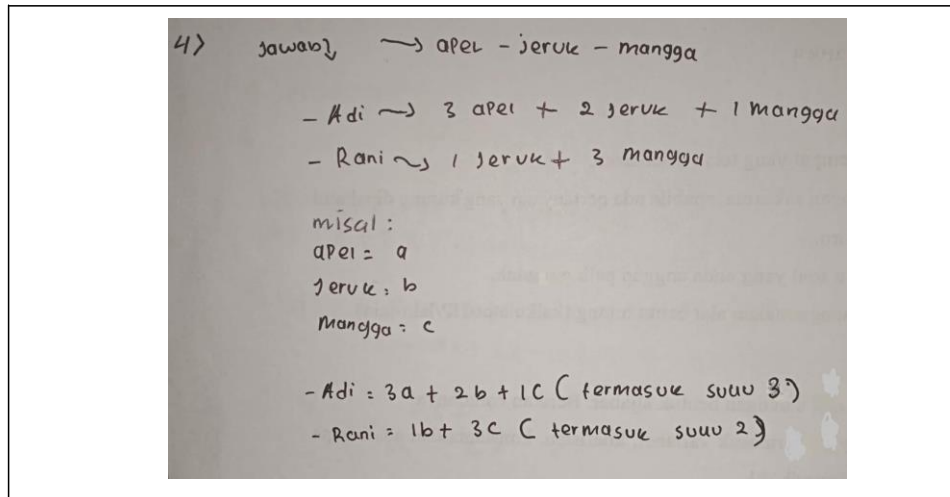 4) Jawab⤵ ⟶ apel - jeruk - mangga
- Adi ⟶ 3 apel + 2 jeruk + 1 mangga
- Rani ⟶ 1 Jeruk + 3 mangga
misal :
apel = a
Jeruk : b
Mangga = c
- Adi = 3a + 2b + 1C ( termasuk suku 3 )
- Rani = 1b + 3c ( termasuk suku 2 )